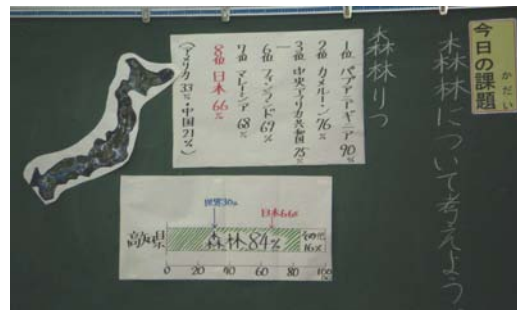 今日の課題
かだい
森林について考えよう。
森林りつ
1位 パプアニューギニア 90%
2位 カメルーン 76%
3位 中央アフリカ共和国 75%
6位 フィンランド 69%
7位 マレーシア 68%
8位 日本 66%
(アメリカ 33%・中国 21%)
世界30%
日本66%
高知県
森林 84%
その他
16%
0 20 40 60 80 100